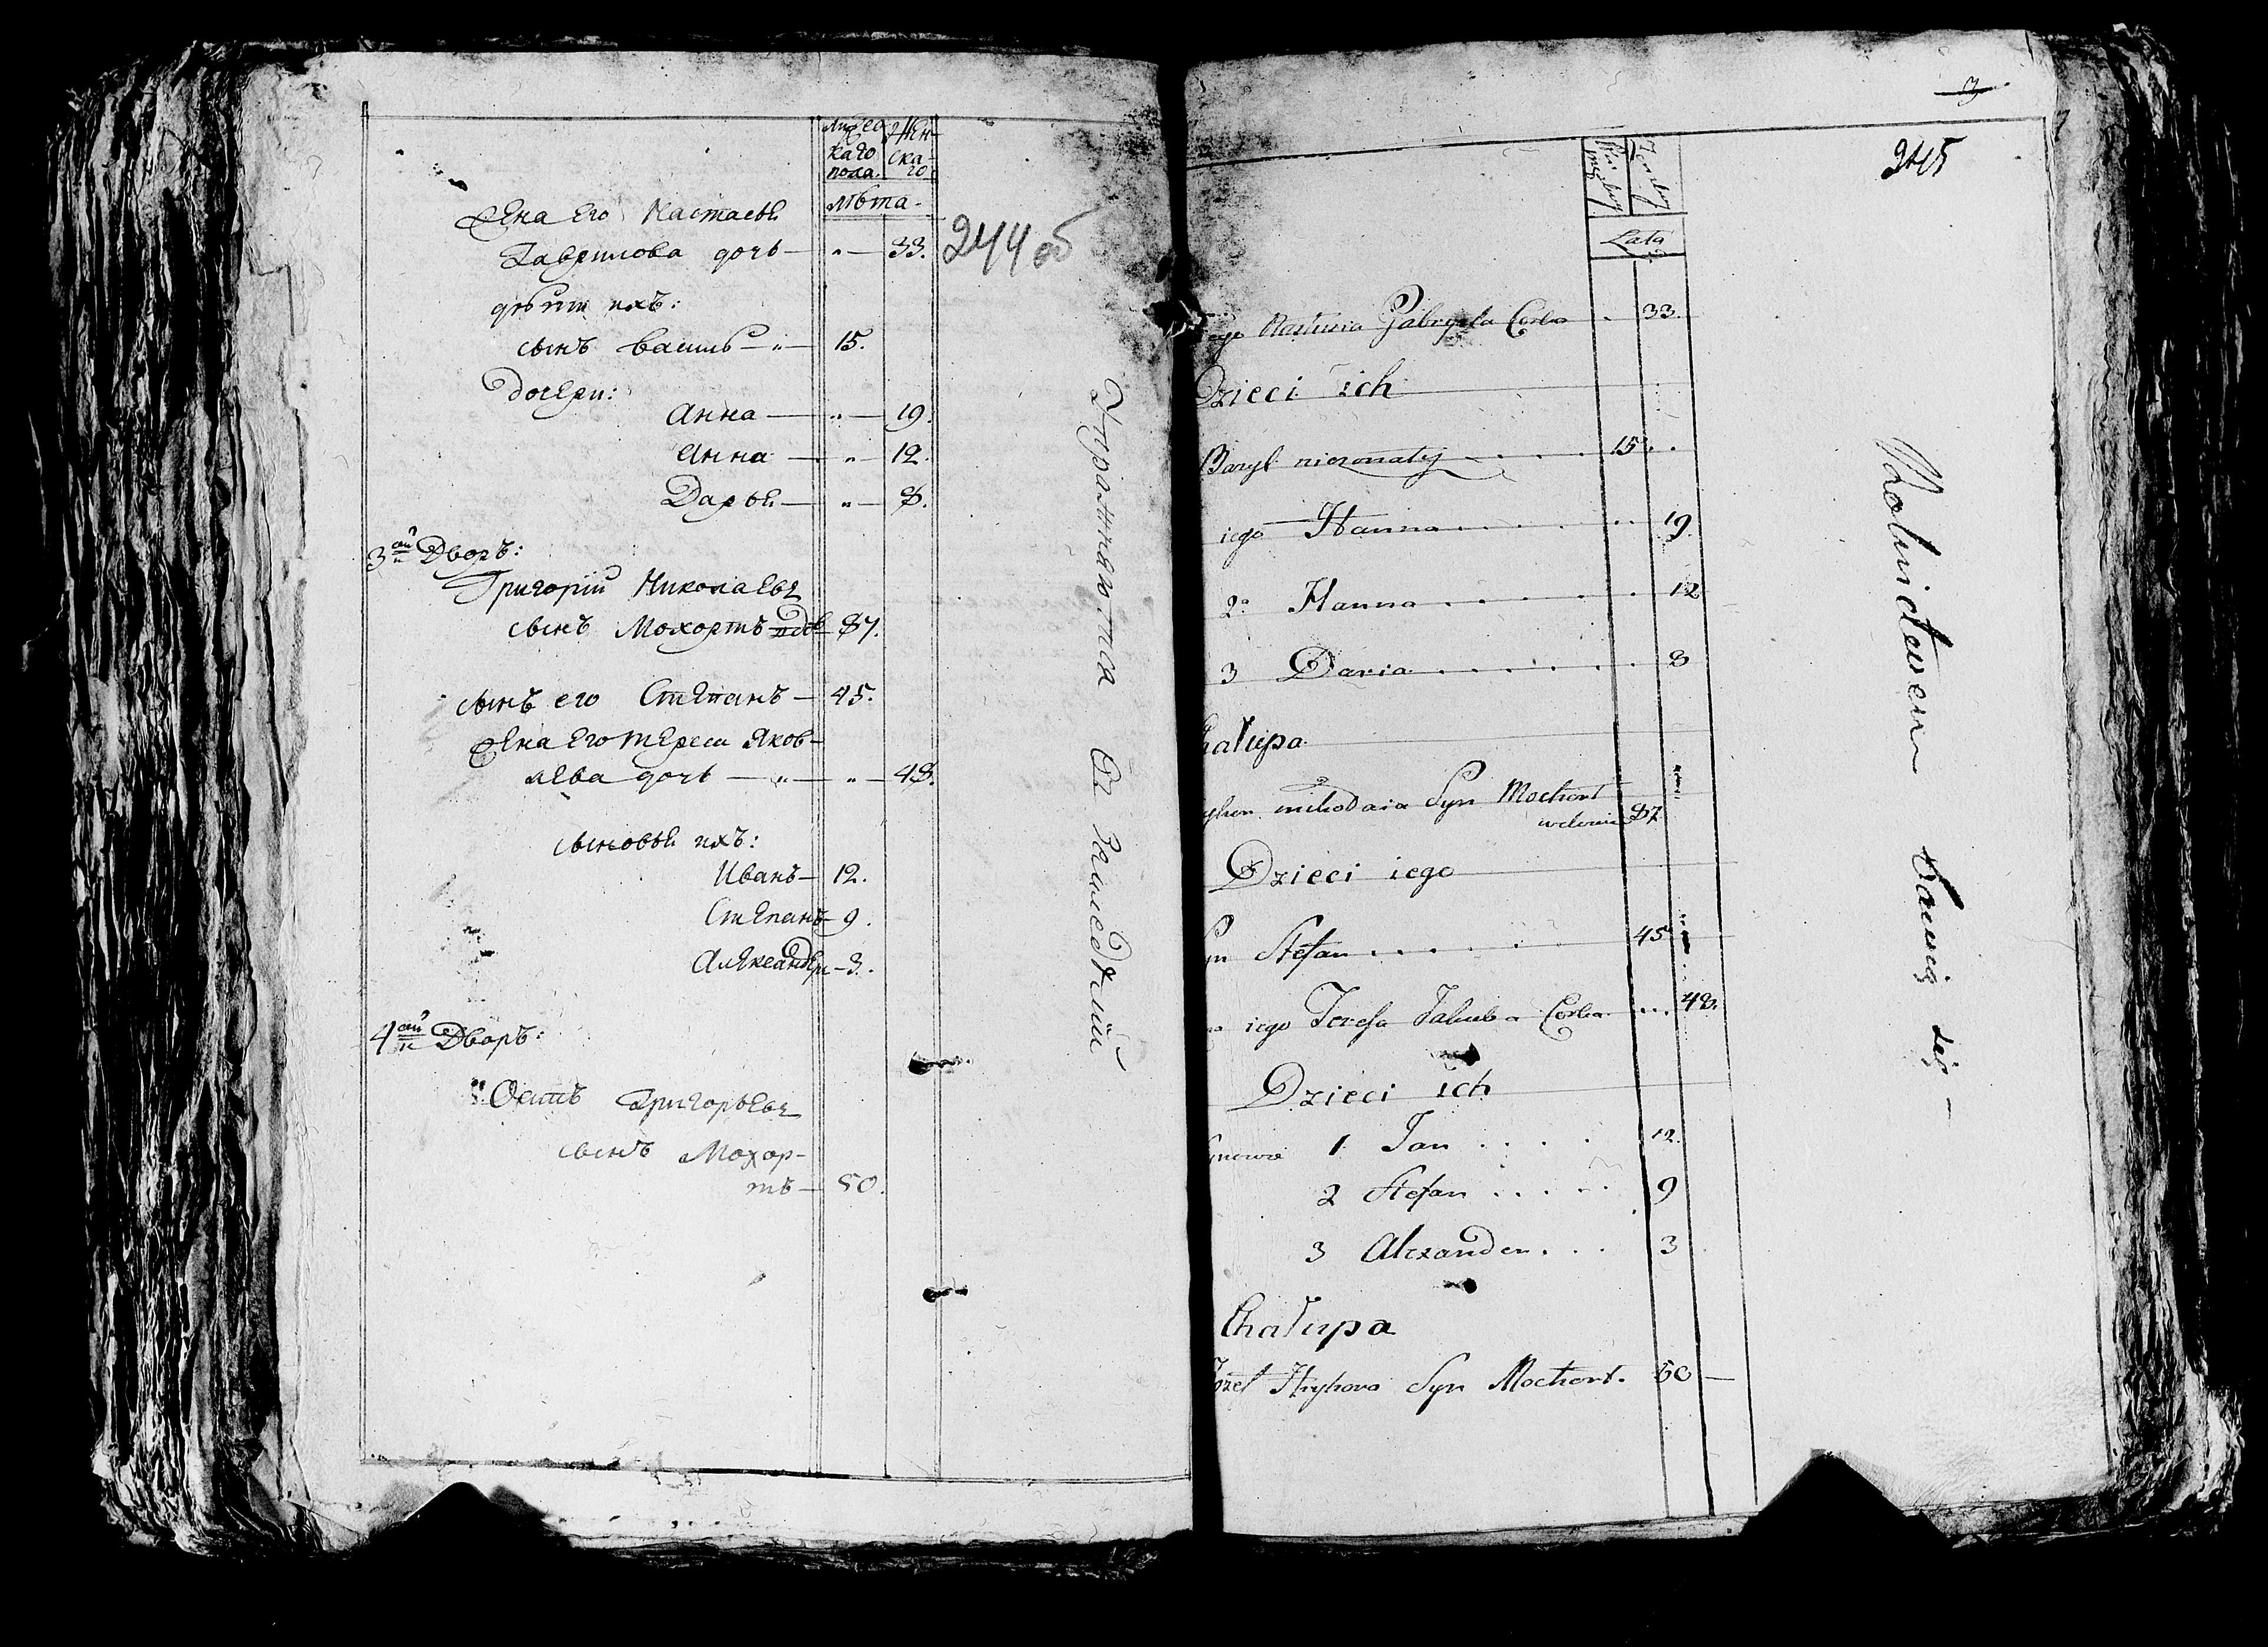 мужес
каго
пола.
жен-
ска-
го
лѣта.
244 об
жена его Настасья
Гаврилова дочь — „ — 33.
дѣти ихъ:
сынъ Василь — „ — 15.
Дочери:
Анна — „ — 19.
Анна — „ — 12.
Дарья — „ — 8.
3ай Дворъ:
Григорій Николаевъ
сынъ Мохортъ вдов 87.
сынъ его Степанъ — 45.
жена его Тереса Яков-
лева дочь — „ — „ — 48.
сыновья ихъ:
Иванъ — 12.
Степанъ — 9.
Александръ — 3.
4ай Дворъ:
Осипъ Григорьевъ
сынъ Мохор-
тъ — 50.
Упражняютса в земледелии
3
245
Męskiey
Zenskiey
Lata
iego Nastusia Gabryela Corka . 33.
Dzieci ich
Bazyl niezonaty . . . . 15 . .
iego Hanna . . . . . . . 19.
2a Hanna . . . . . . . 12
3 Daria . . . . . . . 8
hałupa
yhor mikołaia Syn Mochort
wdowiec 87
Dzieci iego
yn Stefan . . . . . 45
iego Teresa Jakuba Corka . . . 48.
Dzieci ich
ynowie 1 Jan . . . . 12.
2 Stefan . . . . . 9
3 Alexander . . . 3
Chałupa
Jozef Hryhora Syn Mochort . 50 —
Rolnictwem bawią się —